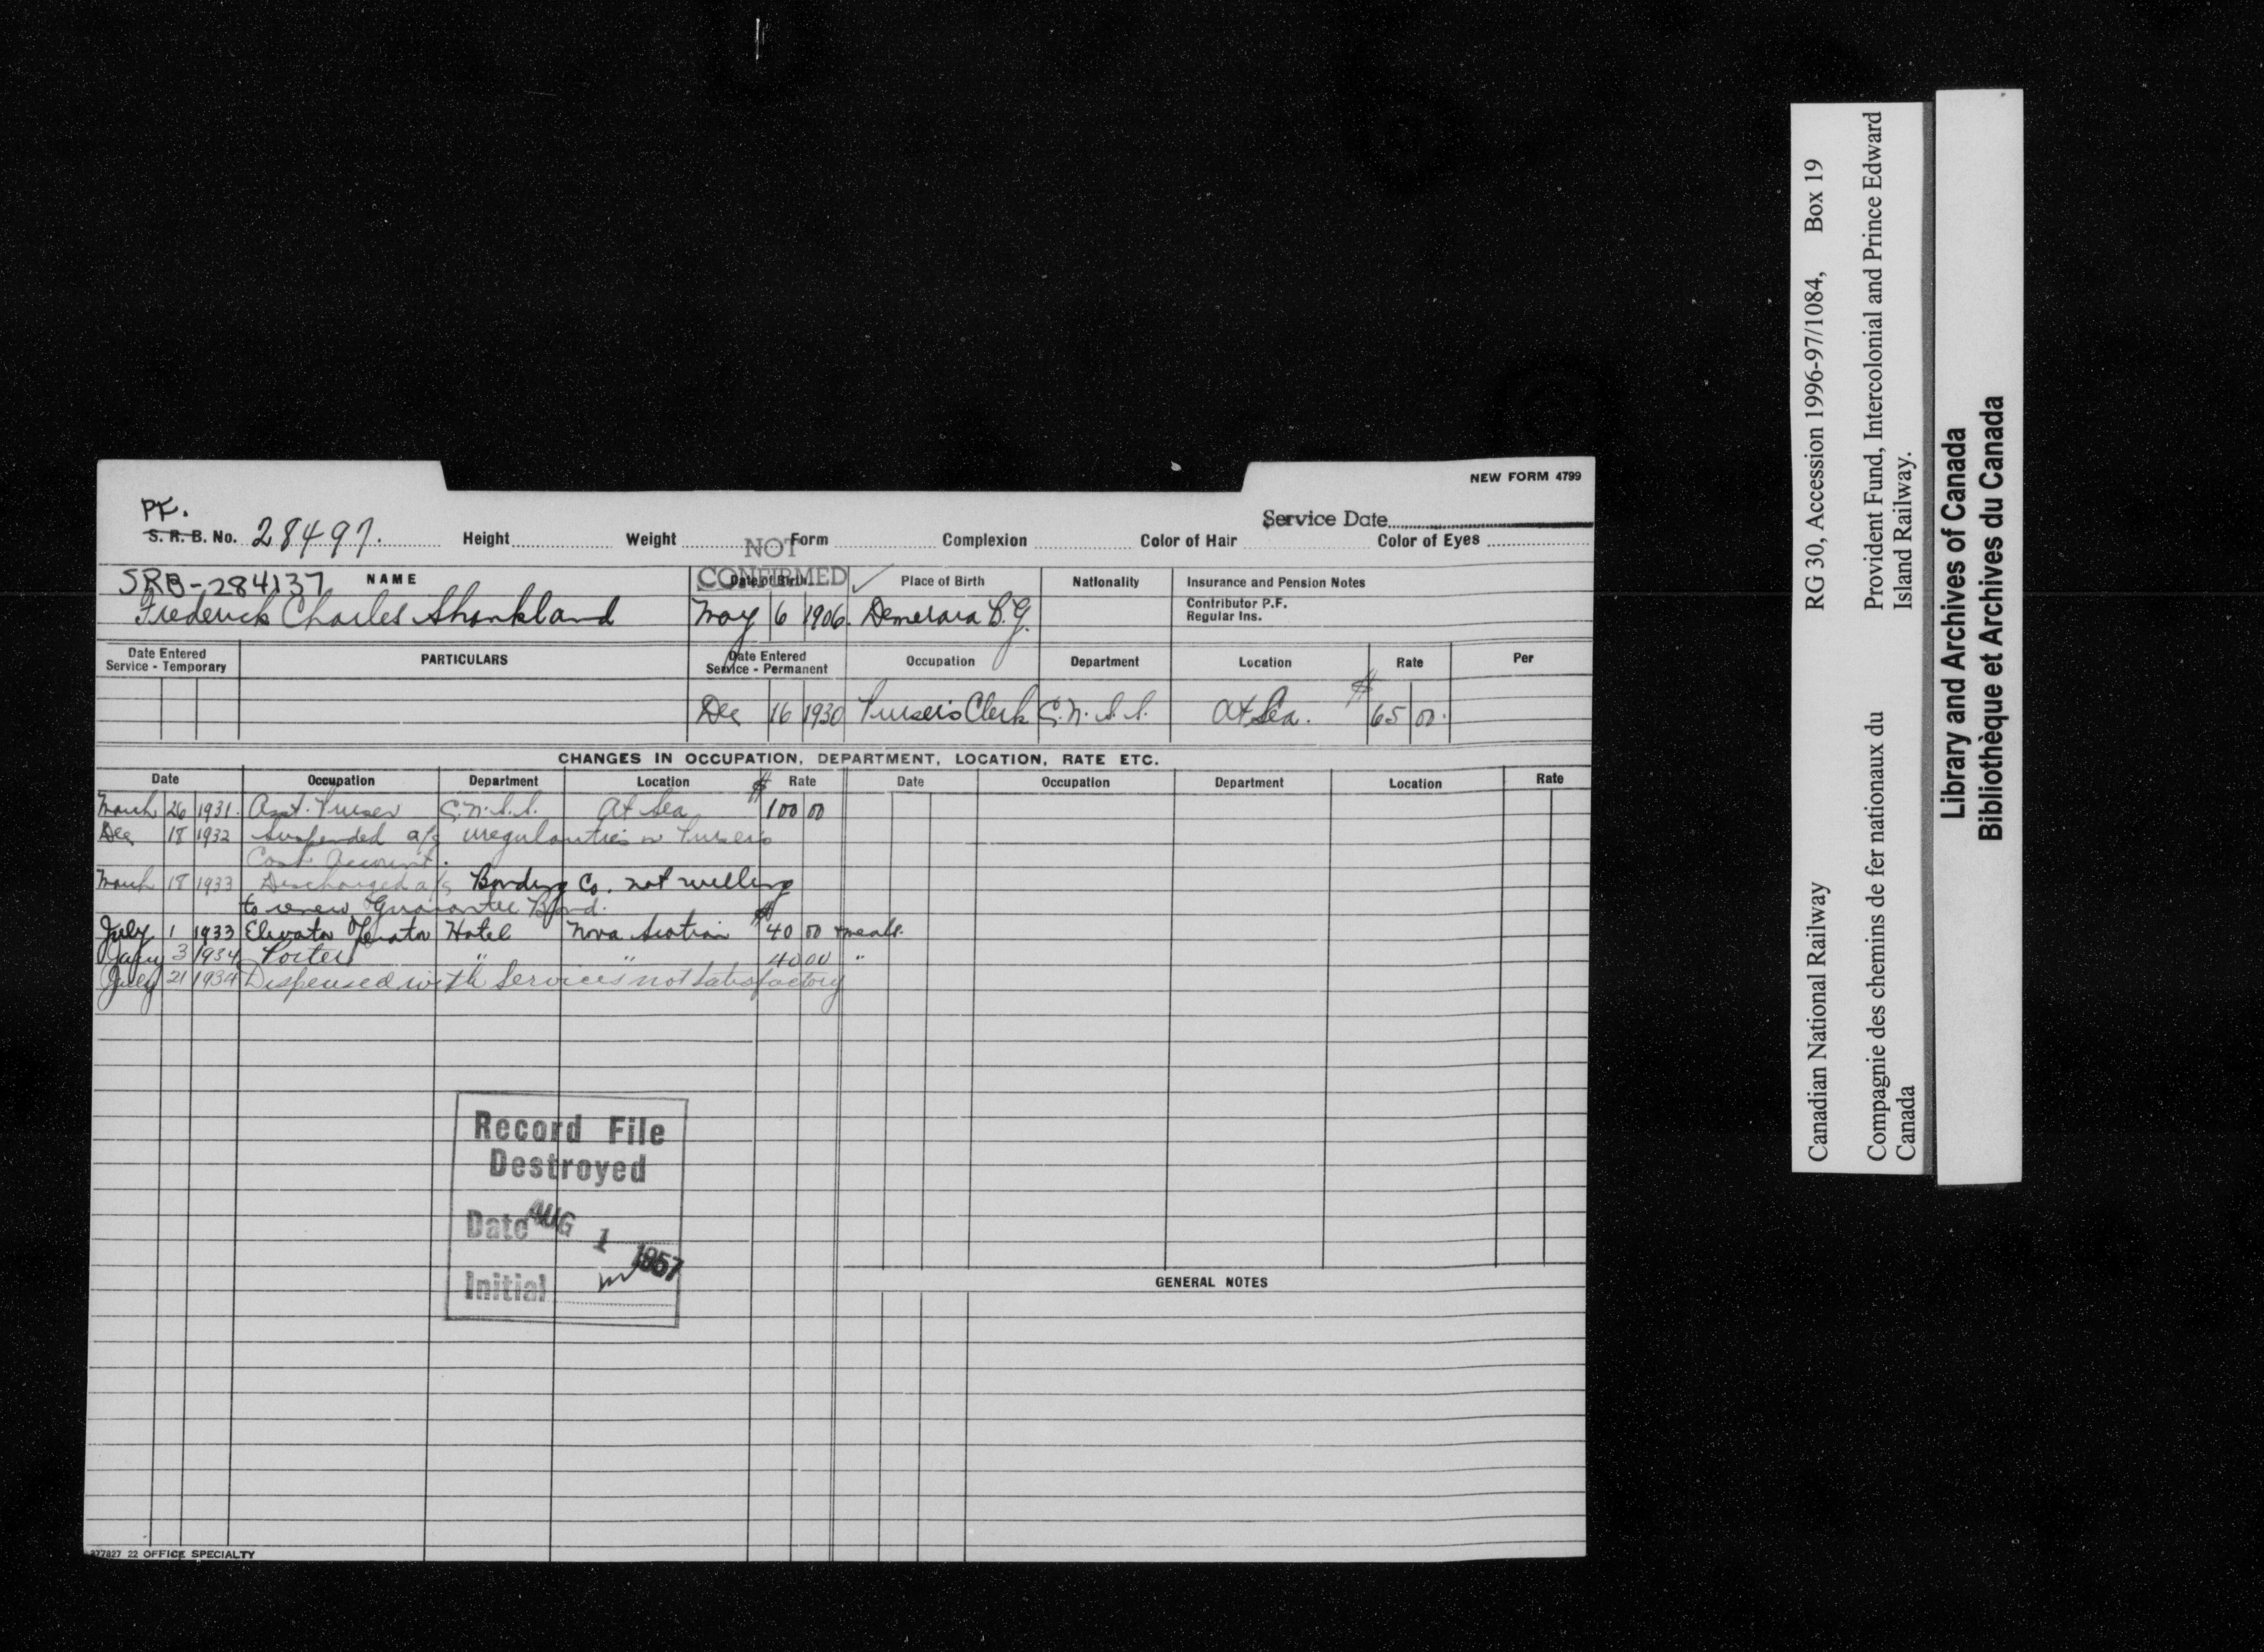 NEW FORM 4799
PF.
S. R. B. No. 28497. Height Weight Form Complexion Color of Hair Color of Eyes
Service Date
NOT CONFIRMED
SRB-284137 NAME Date of Birth Place of Birth Nationality Insurance and Pension Notes
Frederick Charles Shankland May 6 1906. Demerara B.G. Contributor P.F.
Regular Ins.
Date Entered Service - Temporary PARTICULARS Date Entered Service - Permanent Occupation Department Location Rate Per
Dec 16 1930 Purser's Clerk C.N.S.S. At Sea. $ 65 00.
CHANGES IN OCCUPATION, DEPARTMENT, LOCATION, RATE ETC.
Date Occupation Department Location $ Rate Date Occupation Department Location Rate
March 26 1931. Asst. Purser C.N.S.S. At Sea 100 00
Dec 18 1932 Suspended a/c irregularities in Purser's
Cash Account.
March 18 1933 Discharged a/c Bonding Co. not willing
to renew Guarantee Bond.
July 1 1933 Elevator Operator Hotel Nova Scotian $ 40 00 + meals.
Jany 3 1934 Porter " " 40 00 "
July 21 1934 Dispensed with Services not satisfactory
Record File
Destroyed
Date AUG 1 1957
Initial
GENERAL NOTES
22 OFFICE SPECIALTY
Canadian National Railway RG 30, Accession 1996-97/1084, Box 19
Compagnie des chemins de fer nationaux du Canada Provident Fund, Intercolonial and Prince Edward Island Railway.
Library and Archives of Canada
Bibliothèque et Archives du Canada